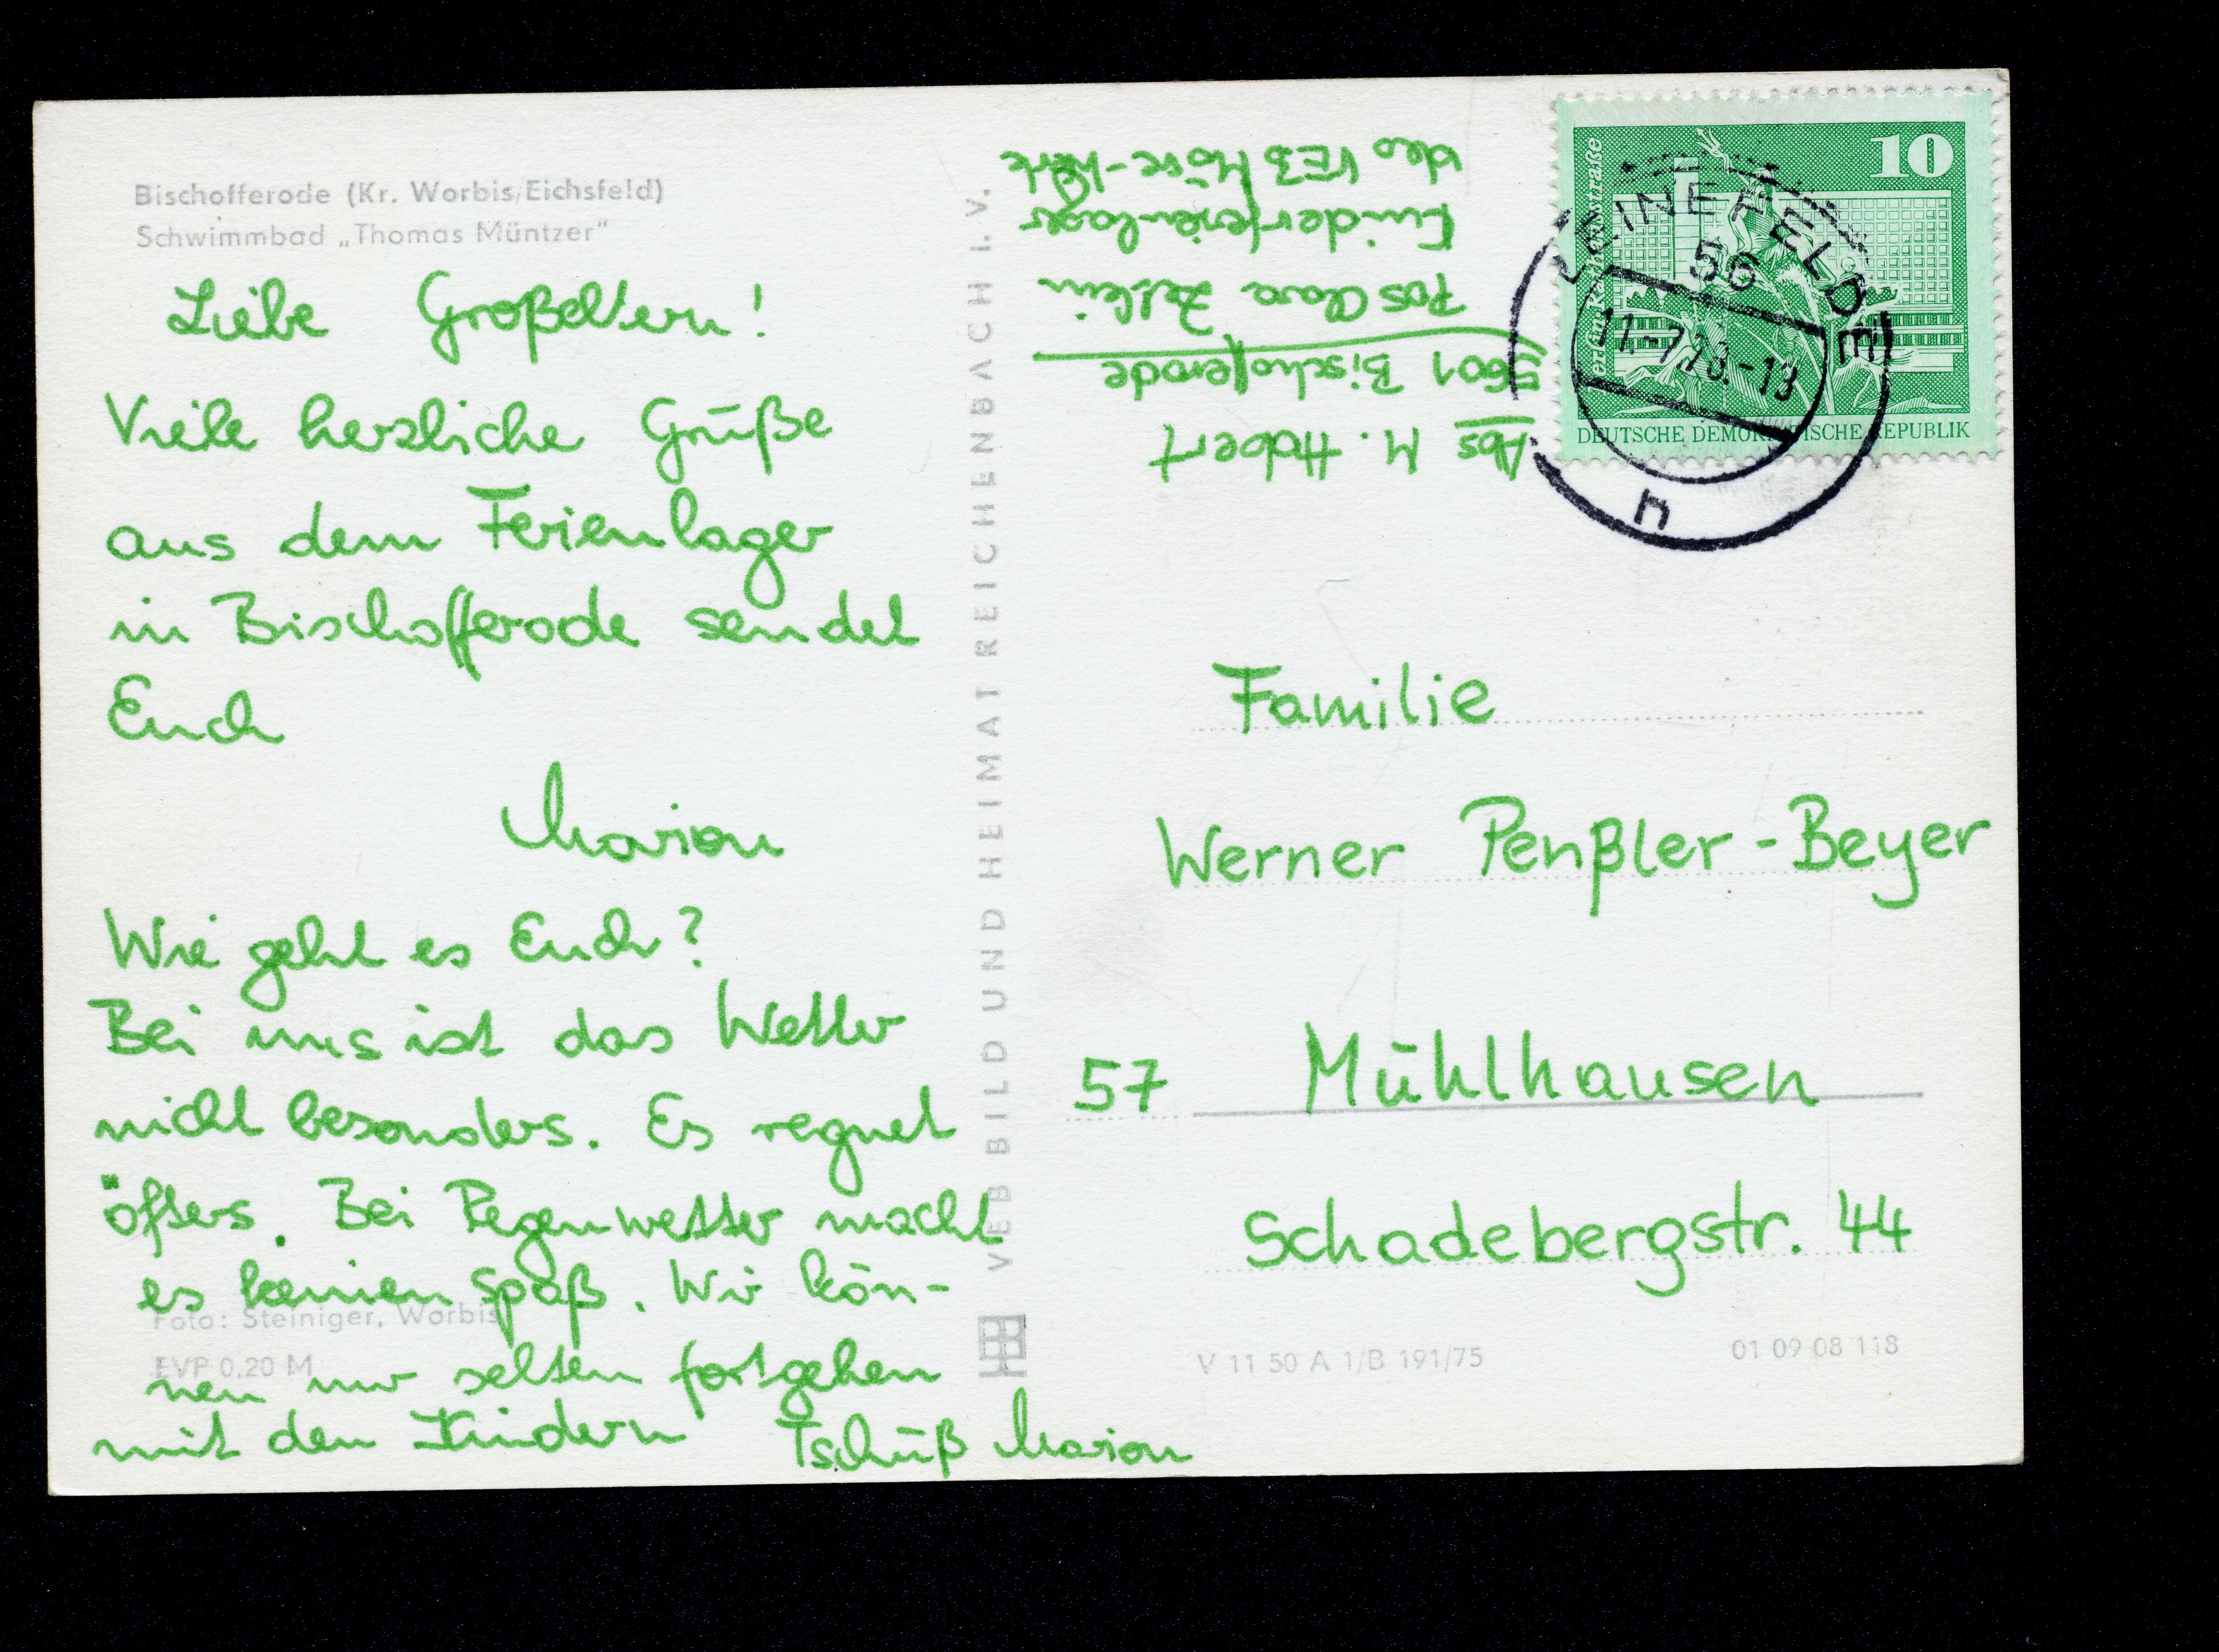 Bischofferode (Kr. Worbis/Eichsfeld)
Schwimmbad „Thomas Müntzer"
Liebe Großeltern!
Viele herzliche Grüße
aus dem Ferienlager
in Bischofferode sendet
Euch
Marion
Wie geht es Euch?
Bei uns ist das Wetter
nicht besonders. Es regnet
öfters. Bei Regenwetter macht
es keinen Spaß. Wir kön-
nen nur selten fortgehen
mit den Kindern Tschüß Marion
Foto: Steiniger, Worbis
EVP 0,20 M
VEB BILD UND HEIMAT REICHENBACH I. V.
Abs M. Habert
5601 Bischofferode
POS Clara Zetkin
Kinderferienlager
des VEB Möve-Werk
10
DEUTSCHE DEMOKRATISCHE REPUBLIK
LEINEFELDE
56
11.-7.78.-19
n
Familie
Werner Penßler-Beyer
57 Mühlhausen
Schadebergstr. 44
V 11 50 A 1/B 191/75
01 09 08 118